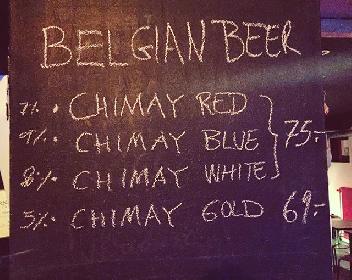 BELGIAN BEER
7% • CHIMAY RED
9% • CHIMAY BLUE 75:-
8% • CHIMAY WHITE
5% • CHIMAY GOLD 69:-